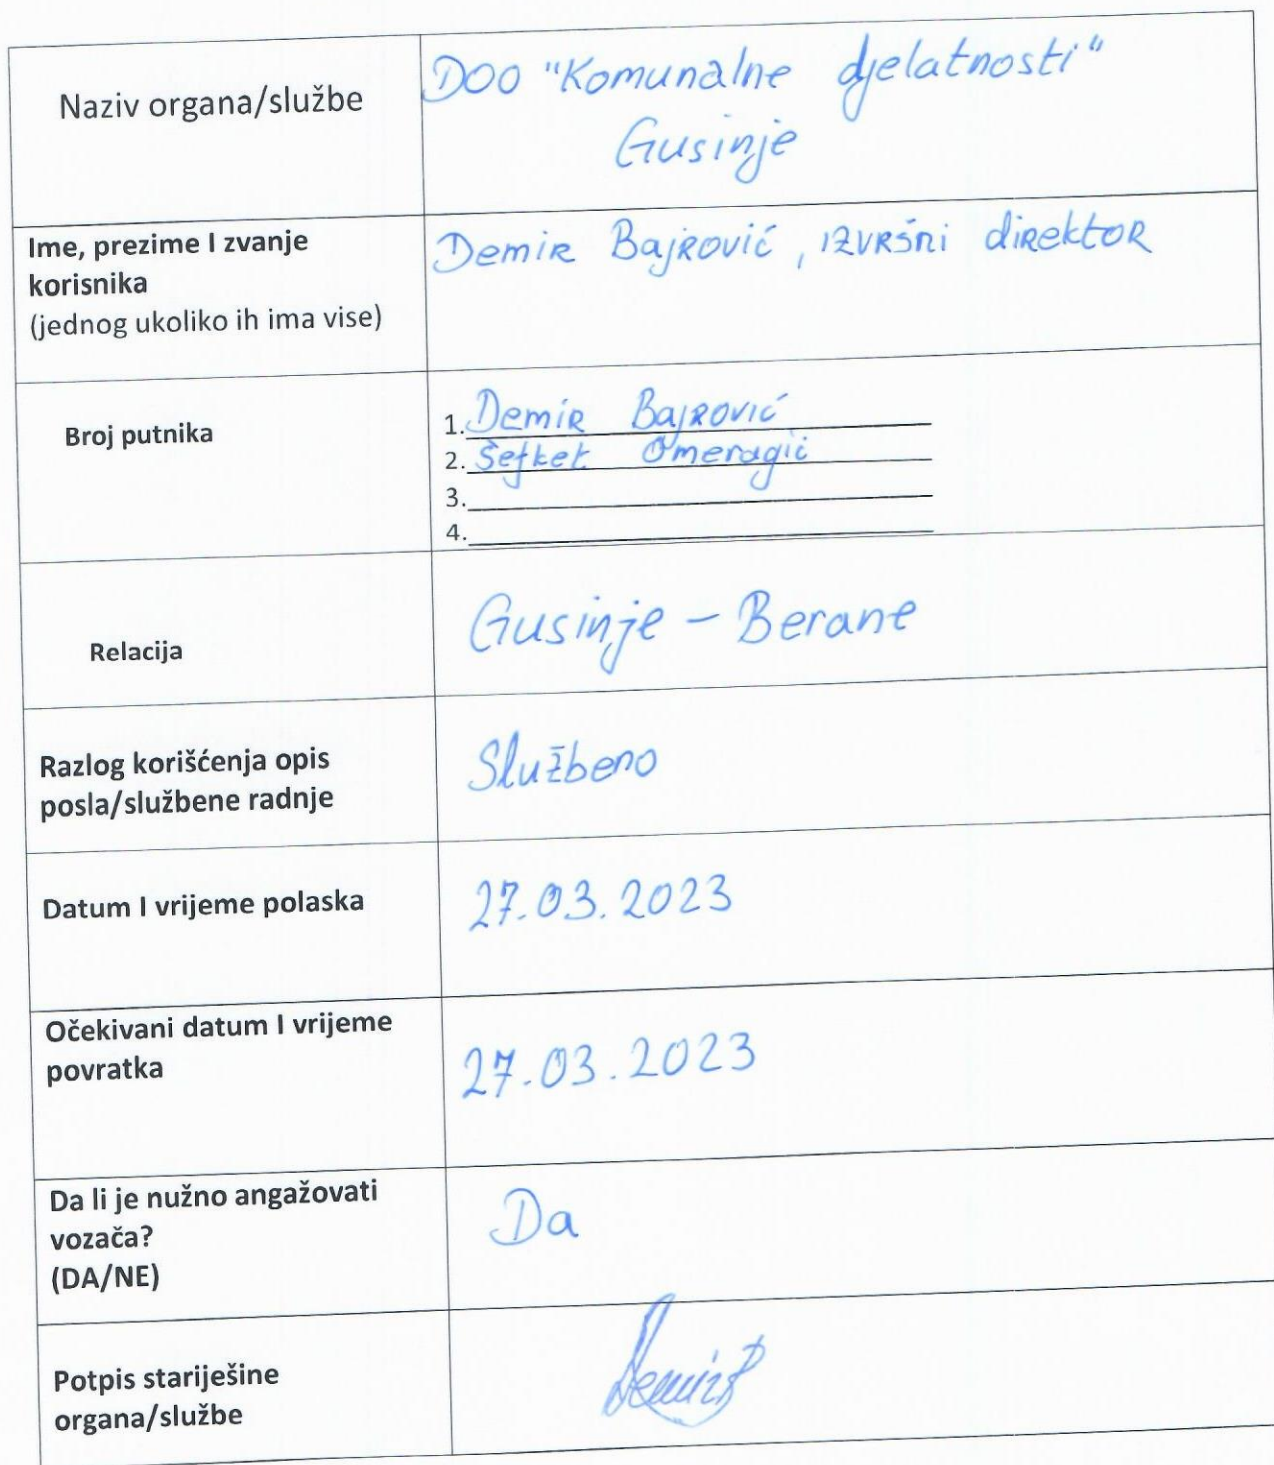 Naziv organa/službe
DOO "Komunalne djelatnosti"
Gusinje
Ime, prezime I zvanje
korisnika
(jednog ukoliko ih ima vise)
Demir Bajrović, izvršni direktor
Broj putnika
1. Demir Bajrović
2. Šefket Omeragić
3.
4.
Relacija
Gusinje - Berane
Razlog korišćenja opis
posla/službene radnje
Službeno
Datum I vrijeme polaska
27.03.2023
Očekivani datum I vrijeme
povratka
27.03.2023
Da li je nužno angažovati
vozača?
(DA/NE)
Da
Potpis starijеšine
organa/službe